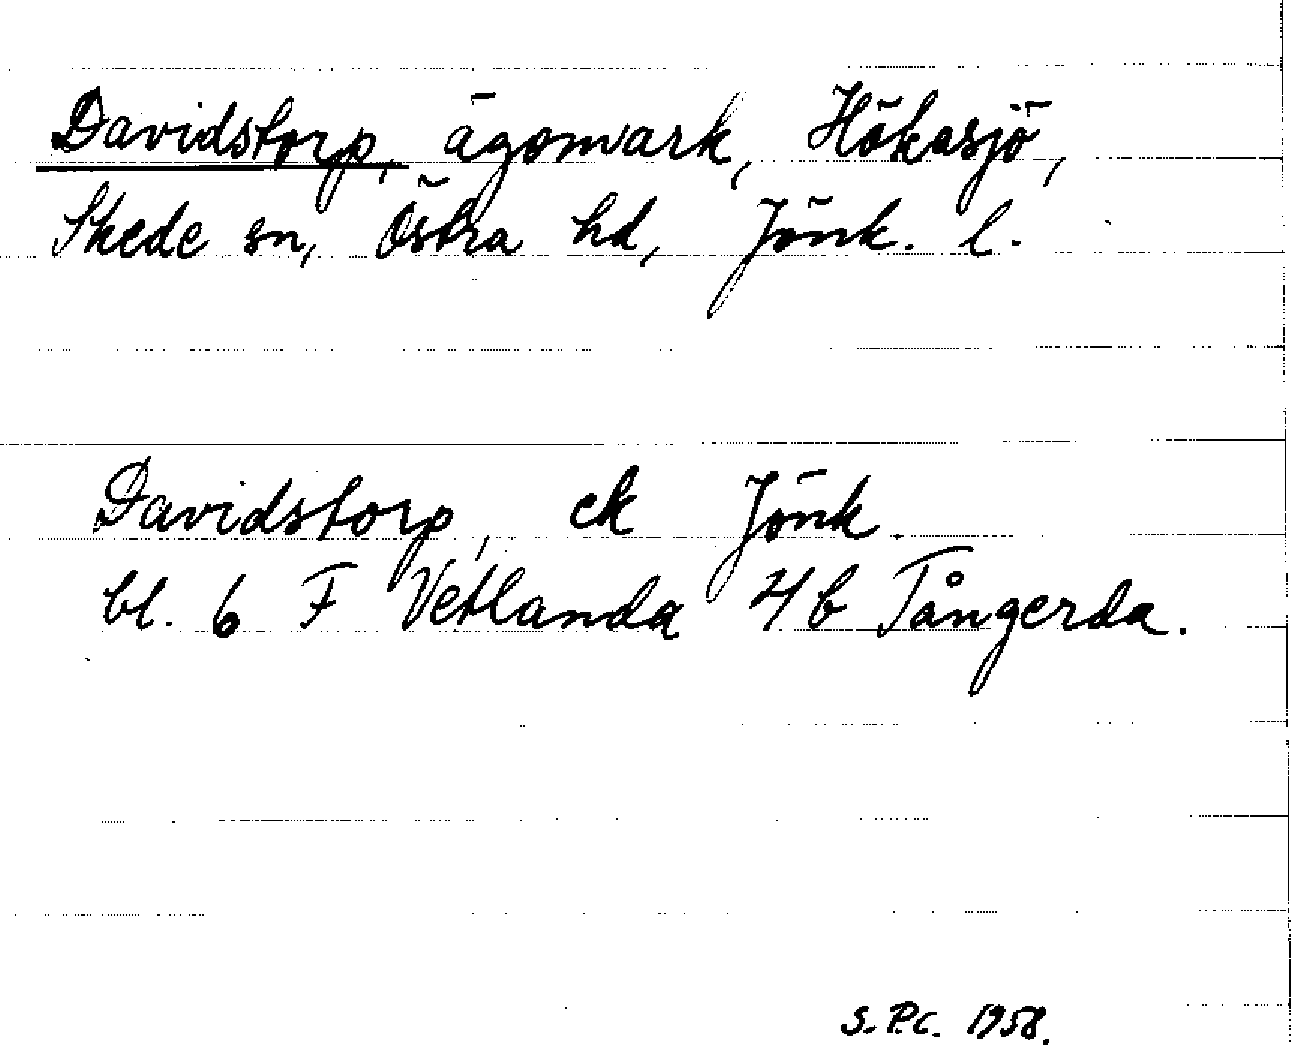 Davidstorp, ägomark, Hökasjö,
Skede sn, Östra hd, Jönk. l.
Davidstorp, ek Jönk.
bl. 6 F Vetlanda 4b Tångerda.
S.P.C. 1958.